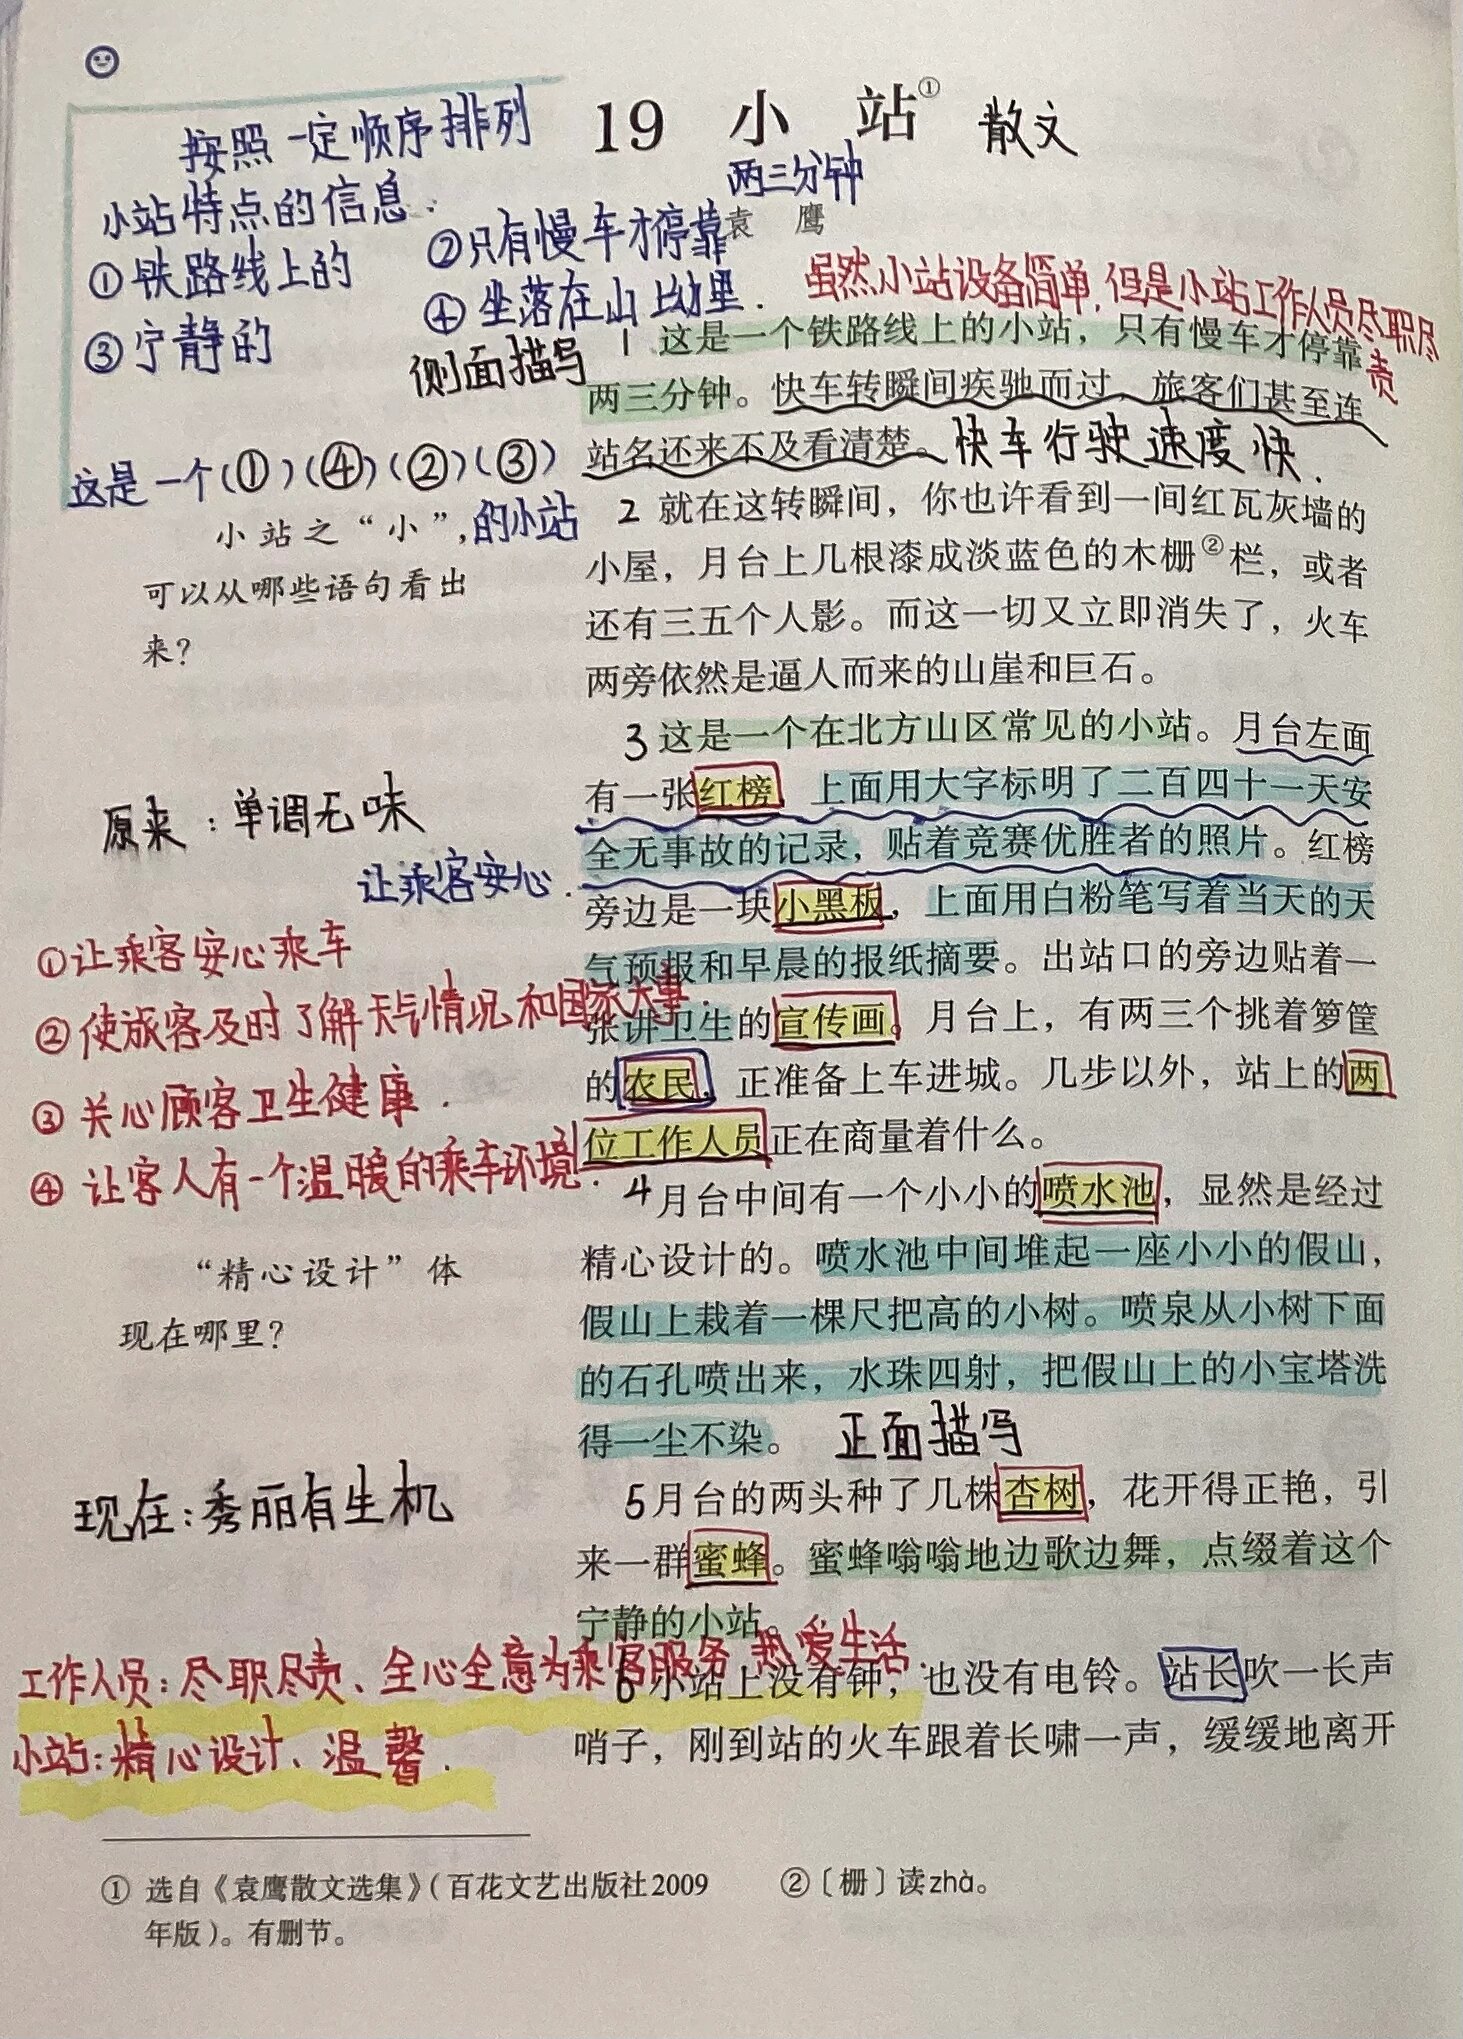 19 小 站①
散文
按照一定顺序排列
小站特点的信息.
①铁路线上的
②只有慢车才停靠
两三分钟
③宁静的
④坐落在山坳里.
这是一个(①)(④)(②)(③)
的小站
袁 鹰
虽然小站设备简单,但是小站工作人员尽职尽
责
侧面描写
1 这是一个铁路线上的小站，只有慢车才停靠
两三分钟。快车转瞬间疾驰而过，旅客们甚至连
站名还来不及看清楚。
快车行驶速度快.
小站之“小”，
可以从哪些语句看出
来？
2 就在这转瞬间，你也许看到一间红瓦灰墙的
小屋，月台上几根漆成淡蓝色的木栅②栏，或者
还有三五个人影。而这一切又立即消失了，火车
两旁依然是逼人而来的山崖和巨石。
3 这是一个在北方山区常见的小站。月台左面
有一张红榜，上面用大字标明了二百四十一天安
全无事故的记录，贴着竞赛优胜者的照片。红榜
旁边是一块小黑板，上面用白粉笔写着当天的天
气预报和早晨的报纸摘要。出站口的旁边贴着一
张讲卫生的宣传画。月台上，有两三个挑着箩筐
的农民，正准备上车进城。几步以外，站上的两
位工作人员正在商量着什么。
原来：单调无味
让乘客安心.
①让乘客安心乘车
②使旅客及时了解天气情况和国家大事.
③关心顾客卫生健康.
④让客人有一个温暖的乘车环境.
4 月台中间有一个小小的喷水池，显然是经过
精心设计的。喷水池中间堆起一座小小的假山，
假山上栽着一棵尺把高的小树。喷泉从小树下面
的石孔喷出来，水珠四射，把假山上的小宝塔洗
得一尘不染。
正面描写
“精心设计”体
现在哪里？
现在：秀丽有生机
5 月台的两头种了几株杏树，花开得正艳，引
来一群蜜蜂。蜜蜂嗡嗡地边歌边舞，点缀着这个
宁静的小站。
工作人员：尽职尽责、全心全意为乘客服务 热爱生活.
小站：精心设计、温馨.
6 小站上没有钟，也没有电铃。站长吹一长声
哨子，刚到站的火车跟着长啸一声，缓缓地离开
① 选自《袁鹰散文选集》（百花文艺出版社2009
年版）。有删节。
②〔栅〕读zhà。